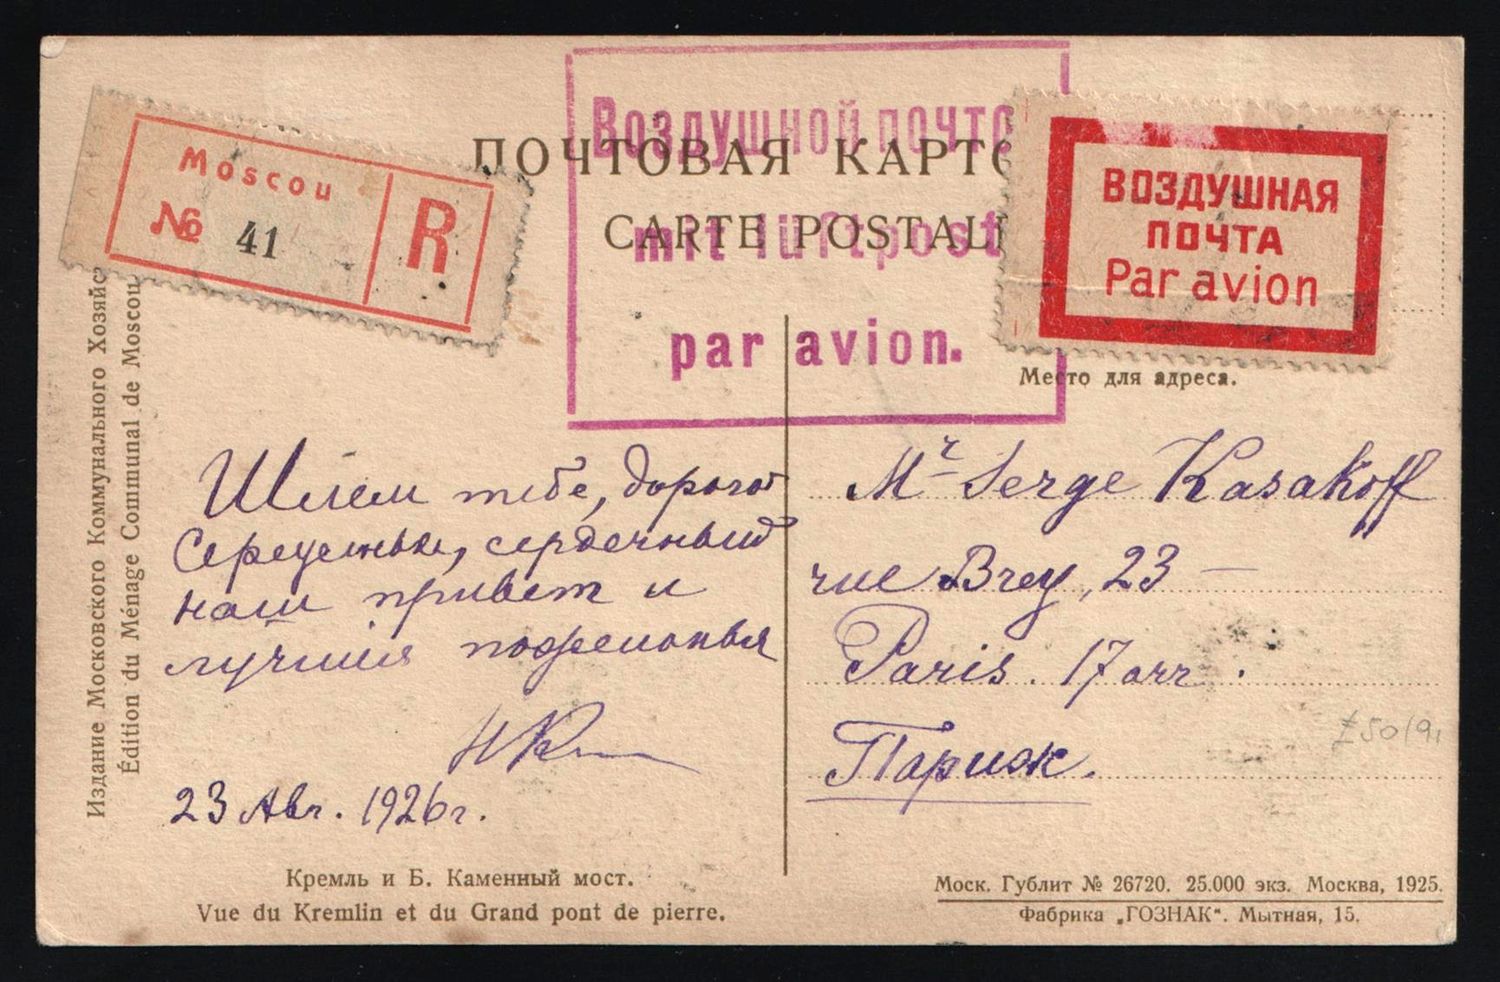 Moscou
№ 41
R
Воздушной почто
mit luftpost
par avion.
ПОЧТОВАЯ КАРТО
CARTE POSTALE
ВОЗДУШНАЯ
ПОЧТА
Par avion
Место для адреса.
Издание Московского Коммунального Хозяйс
Édition du Ménage Communal de Moscou
Шлем тебе, дорогой
Сереженька, сердечный
наш привет и
лучшия пожелания
23 Авг. 1926 г.
Mr Serge Kasakoff
rue Brey, 23 —
Paris. 17 arr.
Париж.
Кремль и Б. Каменный мост.
Vue du Kremlin et du Grand pont de pierre.
Моск. Гублит № 26720. 25.000 экз. Москва, 1925.
Фабрика „ГОЗНАК“. Мытная, 15.